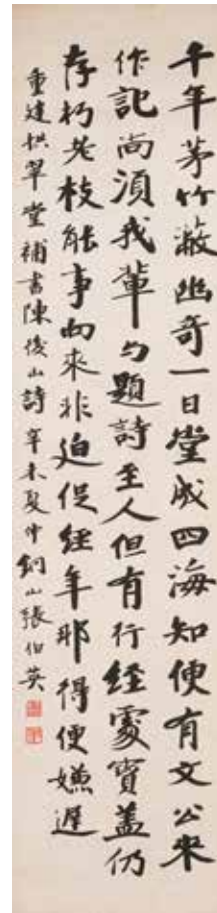 千年茅竹蔽幽奇一日堂成四海知便有文公來
作記尚湏我輩与題詩至人但有行經處寶蓋仍
存朽老枝能事向來非迫促經年耶得便嫌遲
重建拱翠堂補書陳後山詩 辛未夏仲銅山張伯英